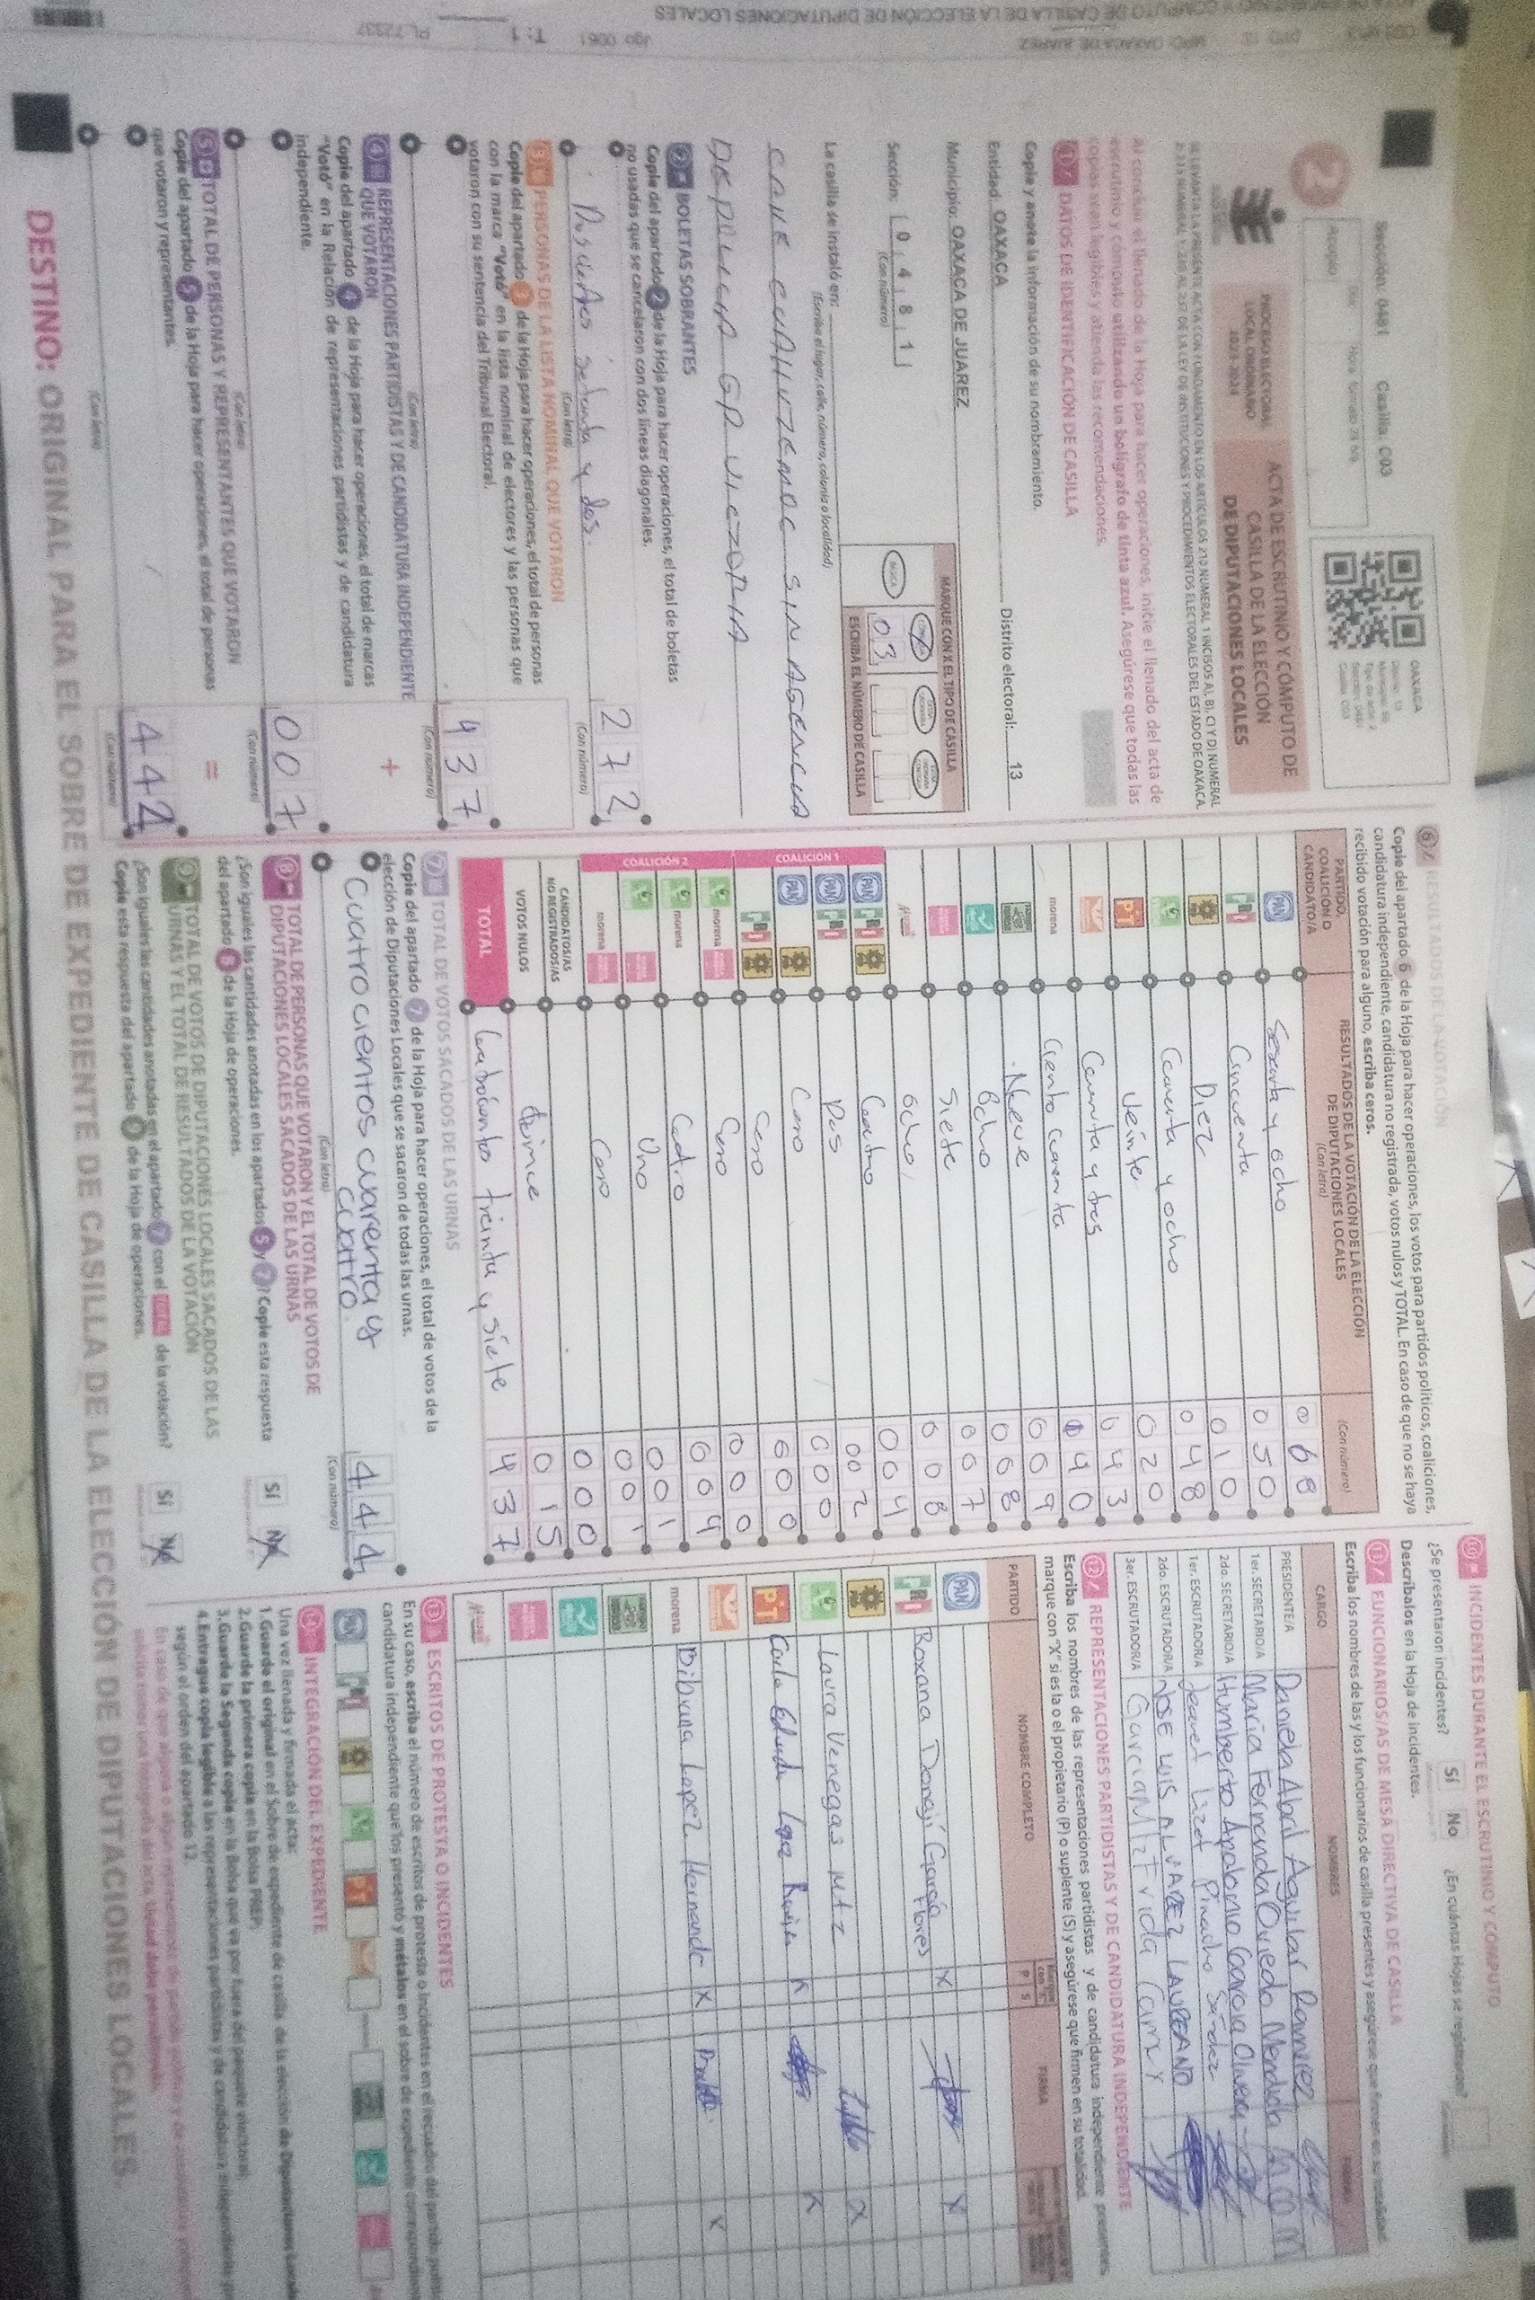 Sección: 0481 Casilla: C03
PROCESO ELECTORAL
LOCAL ORDINARIO
2023-2024
ACTA DE ESCRUTINIO Y CÓMPUTO DE
CASILLA DE LA ELECCIÓN
DE DIPUTACIONES LOCALES
OAXACA
SE LEVANTA LA PRESENTE ACTA CON FUNDAMENTO EN LOS ARTÍCULOS
Al concluir el llenado de la Hoja para hacer operaciones, inicie el llenado del acta de
escrutinio y cómputo utilizando un bolígrafo de tinta azul. Asegúrese que todas las
copias sean legibles y atienda las recomendaciones.
1 DATOS DE IDENTIFICACIÓN DE CASILLA
Copie y anote la información de su nombramiento.
Entidad: OAXACA Distrito electoral: 13
Municipio: OAXACA DE JUAREZ
Sección: 0 4 8 1
(Con número)
MARQUE CON X EL TIPO DE CASILLA
BÁSICA
03
ESCRIBA EL NÚMERO DE CASILLA
La casilla se instaló en:
(Escriba el lugar, calle, número, colonia o localidad)
CALLE CUAHUZEMOC SIN AGENCIA
2 BOLETAS SOBRANTES
Copie del apartado 2 de la Hoja para hacer operaciones, el total de boletas
no usadas que se cancelaron con dos líneas diagonales.
Doscientos setenta y dos.
272
(Con letra) (Con número)
3 PERSONAS DE LA LISTA NOMINAL QUE VOTARON
Copie del apartado 3 de la Hoja para hacer operaciones, el total de personas
con la marca "Votó" en la lista nominal de electores y las personas que
votaron con su sentencia del Tribunal Electoral.
437
(Con letra) (Con número)
4 REPRESENTACIONES PARTIDISTAS Y DE CANDIDATURA INDEPENDIENTE
QUE VOTARON
Copie del apartado 4 de la Hoja para hacer operaciones, el total de marcas
"Votó" en la Relación de representaciones partidistas y de candidatura
independiente.
007
(Con letra) (Con número)
5 TOTAL DE PERSONAS Y REPRESENTANTES QUE VOTARON
Copie del apartado 5 de la Hoja para hacer operaciones, el total de personas
que votaron y representantes.
444
(Con letra) (Con número)
6 RESULTADOS DE LA VOTACIÓN
Copie del apartado 6 de la Hoja para hacer operaciones, los votos para partidos políticos, coaliciones,
candidatura independiente, candidatura no registrada, votos nulos y TOTAL. En caso de que no se haya
recibido votación para alguno, escriba ceros.
PARTIDO,
COALICIÓN O
CANDIDATO/A
RESULTADOS DE LA VOTACIÓN DE LA ELECCIÓN
DE DIPUTACIONES LOCALES
(Con letra)
(Con número)
PAN Sesenta y ocho 068
PRI Cincuenta 050
PRD Diez 010
Cuarenta y ocho 048
PT Veinte 020
Cuarenta y tres 043
morena Ciento cuarenta 140
Nueve 009
Ocho 008
Siete 007
Ocho 008
COALICIÓN 1
PAN PRI PRD Cuatro 004
PAN PRI Dos 002
PAN PRD Cero 000
PRI PRD Cero 000
COALICIÓN 2
morena Cero 000
morena Cuatro 004
Uno 001
morena Cero 001
CANDIDATOS/AS
NO REGISTRADOS/AS 000
VOTOS NULOS 015
TOTAL Cuatrocientos treinta y siete 437
7 TOTAL DE VOTOS SACADOS DE LAS URNAS
Copie del apartado 7 de la Hoja para hacer operaciones, el total de votos de la
elección de Diputaciones Locales que se sacaron de todas las urnas.
Cuatrocientos cuarenta y
cuatro.
444
(Con letra) (Con número)
8 TOTAL DE PERSONAS QUE VOTARON Y EL TOTAL DE VOTOS DE
DIPUTACIONES LOCALES SACADOS DE LAS URNAS
¿Son iguales las cantidades anotadas en los apartados 5 y 7? Copie esta respuesta
del apartado 8 de la Hoja de operaciones.
Sí No
9 TOTAL DE VOTOS DE DIPUTACIONES LOCALES SACADOS DE LAS
URNAS Y EL TOTAL DE RESULTADOS DE LA VOTACIÓN
¿Son iguales las cantidades anotadas en el apartado 7 con el TOTAL de la votación?
Copie esta respuesta del apartado 9 de la Hoja de operaciones.
Sí No
10 INCIDENTES DURANTE EL ESCRUTINIO Y CÓMPUTO
¿Se presentaron incidentes? Sí No ¿En cuántas Hojas se registraron?
Descríbalos en la Hoja de incidentes.
11 FUNCIONARIOS/AS DE MESA DIRECTIVA DE CASILLA
Escriba los nombres de las y los funcionarios de casilla presentes y asegúrese que firmen en su totalidad.
CARGO NOMBRES
PRESIDENTE/A Daniela Abril Aguilar Ramirez
1er. SECRETARIO/A María Fernanda Oviedo Mendiola
2do. SECRETARIO/A Humberto Apolonio Garcia Olivera
1er. ESCRUTADOR/A Jeanet Lizet Pinacho Sánchez
2do. ESCRUTADOR/A JOSE LUIS ALVAREZ LAUREANO
3er. ESCRUTADOR/A
12 REPRESENTACIONES PARTIDISTAS Y DE CANDIDATURA INDEPENDIENTE
Escriba los nombres de las representaciones partidistas y de candidatura independiente presentes,
marque con "X" si es la o el propietario (P) o suplente (S) y asegúrese que firmen en su totalidad.
PARTIDO NOMBRE COMPLETO P S FIRMA
PAN
PRI Roxana Donají García Flores X X
PRD
Laura Venegas Mtz X
PT X X
morena Bibiana Lopez Hernande X X
13 ESCRITOS DE PROTESTA O INCIDENTES
En su caso, escriba el número de escritos de protesta o incidentes en el recuadro del partido político
candidatura independiente que los presentó y métalos en el sobre de expediente correspondiente
14 INTEGRACIÓN DEL EXPEDIENTE
Una vez llenada y firmada el acta:
1.Guarde el original en el Sobre de expediente de casilla de la elección de Diputaciones Locales
2.Guarde la primera copia en la Bolsa PREP;
3.Guarde la Segunda copia en la Bolsa que va por fuera del paquete electoral;
4.Entregue copia legible a las representaciones partidistas y de candidatura independiente
según el orden del apartado 12.
DESTINO: ORIGINAL PARA EL SOBRE DE EXPEDIENTE DE CASILLA DE LA ELECCIÓN DE DIPUTACIONES LOCALES.